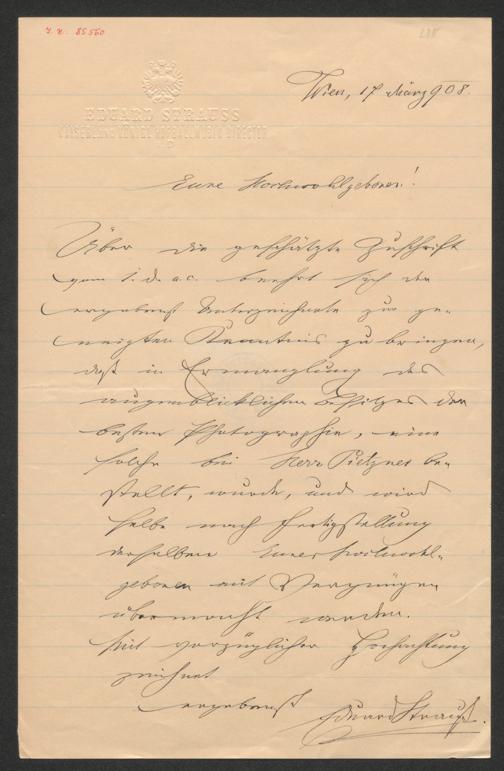 J. N. 85560
288
EDUARD STRAUSS
KAISERL. UND KÖNIGL. HOFBALLMUSIK-DIRECTOR
Wien, 17 März 908.
Eure Hochwohlgeboren!
Über die geschätzte Zuschrift
vom 1. d. a.c. beehrt sich der
ergebenst Unterzeichnete zur ge-
neigten Kenntnis zu bringen,
daß in Ermanglung des
augenblicklichen Besitzes der
besten Photographie, eine
solche bei Herr Pietzner be-
stellt, wurde, und wird
selbe nach Fertigstellung
derselben Euer Hochwohl-
geboren mit Vergnügen
übermacht werden.
Mit vorzüglicher Hochachtung
zeichnet
ergebenst
Eduard Strauß.